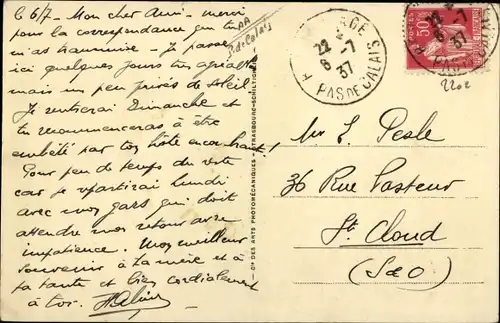 le 6/7 - Mon cher ami - merci
pour la correspondance que tu
m'as transmise. Je passe
ici quelques jours très agréables
mais un peu privés de soleil
Je rentrerai Dimanche et
tu recommenceras à être
embêté par ton hôte encombrant !
Pour peu de temps du reste
car je repartirai lundi
avec mes gars qui doit
attendre mon retour avec
impatience. Mes meilleurs
souvenirs à ta mère et à
ta tante et bien cordialement
à toi.
P. de Calais
Cie DES ARTS PHOTOMÉCANIQUES - STRASBOURG-SCHILTIGHEIM
PLAGE
22 8-7 37
PAS DE CALAIS
50
8-7
37
PAS DE CALAIS
2202
Mr
36 Rue Pasteur
St Cloud
(S & O)